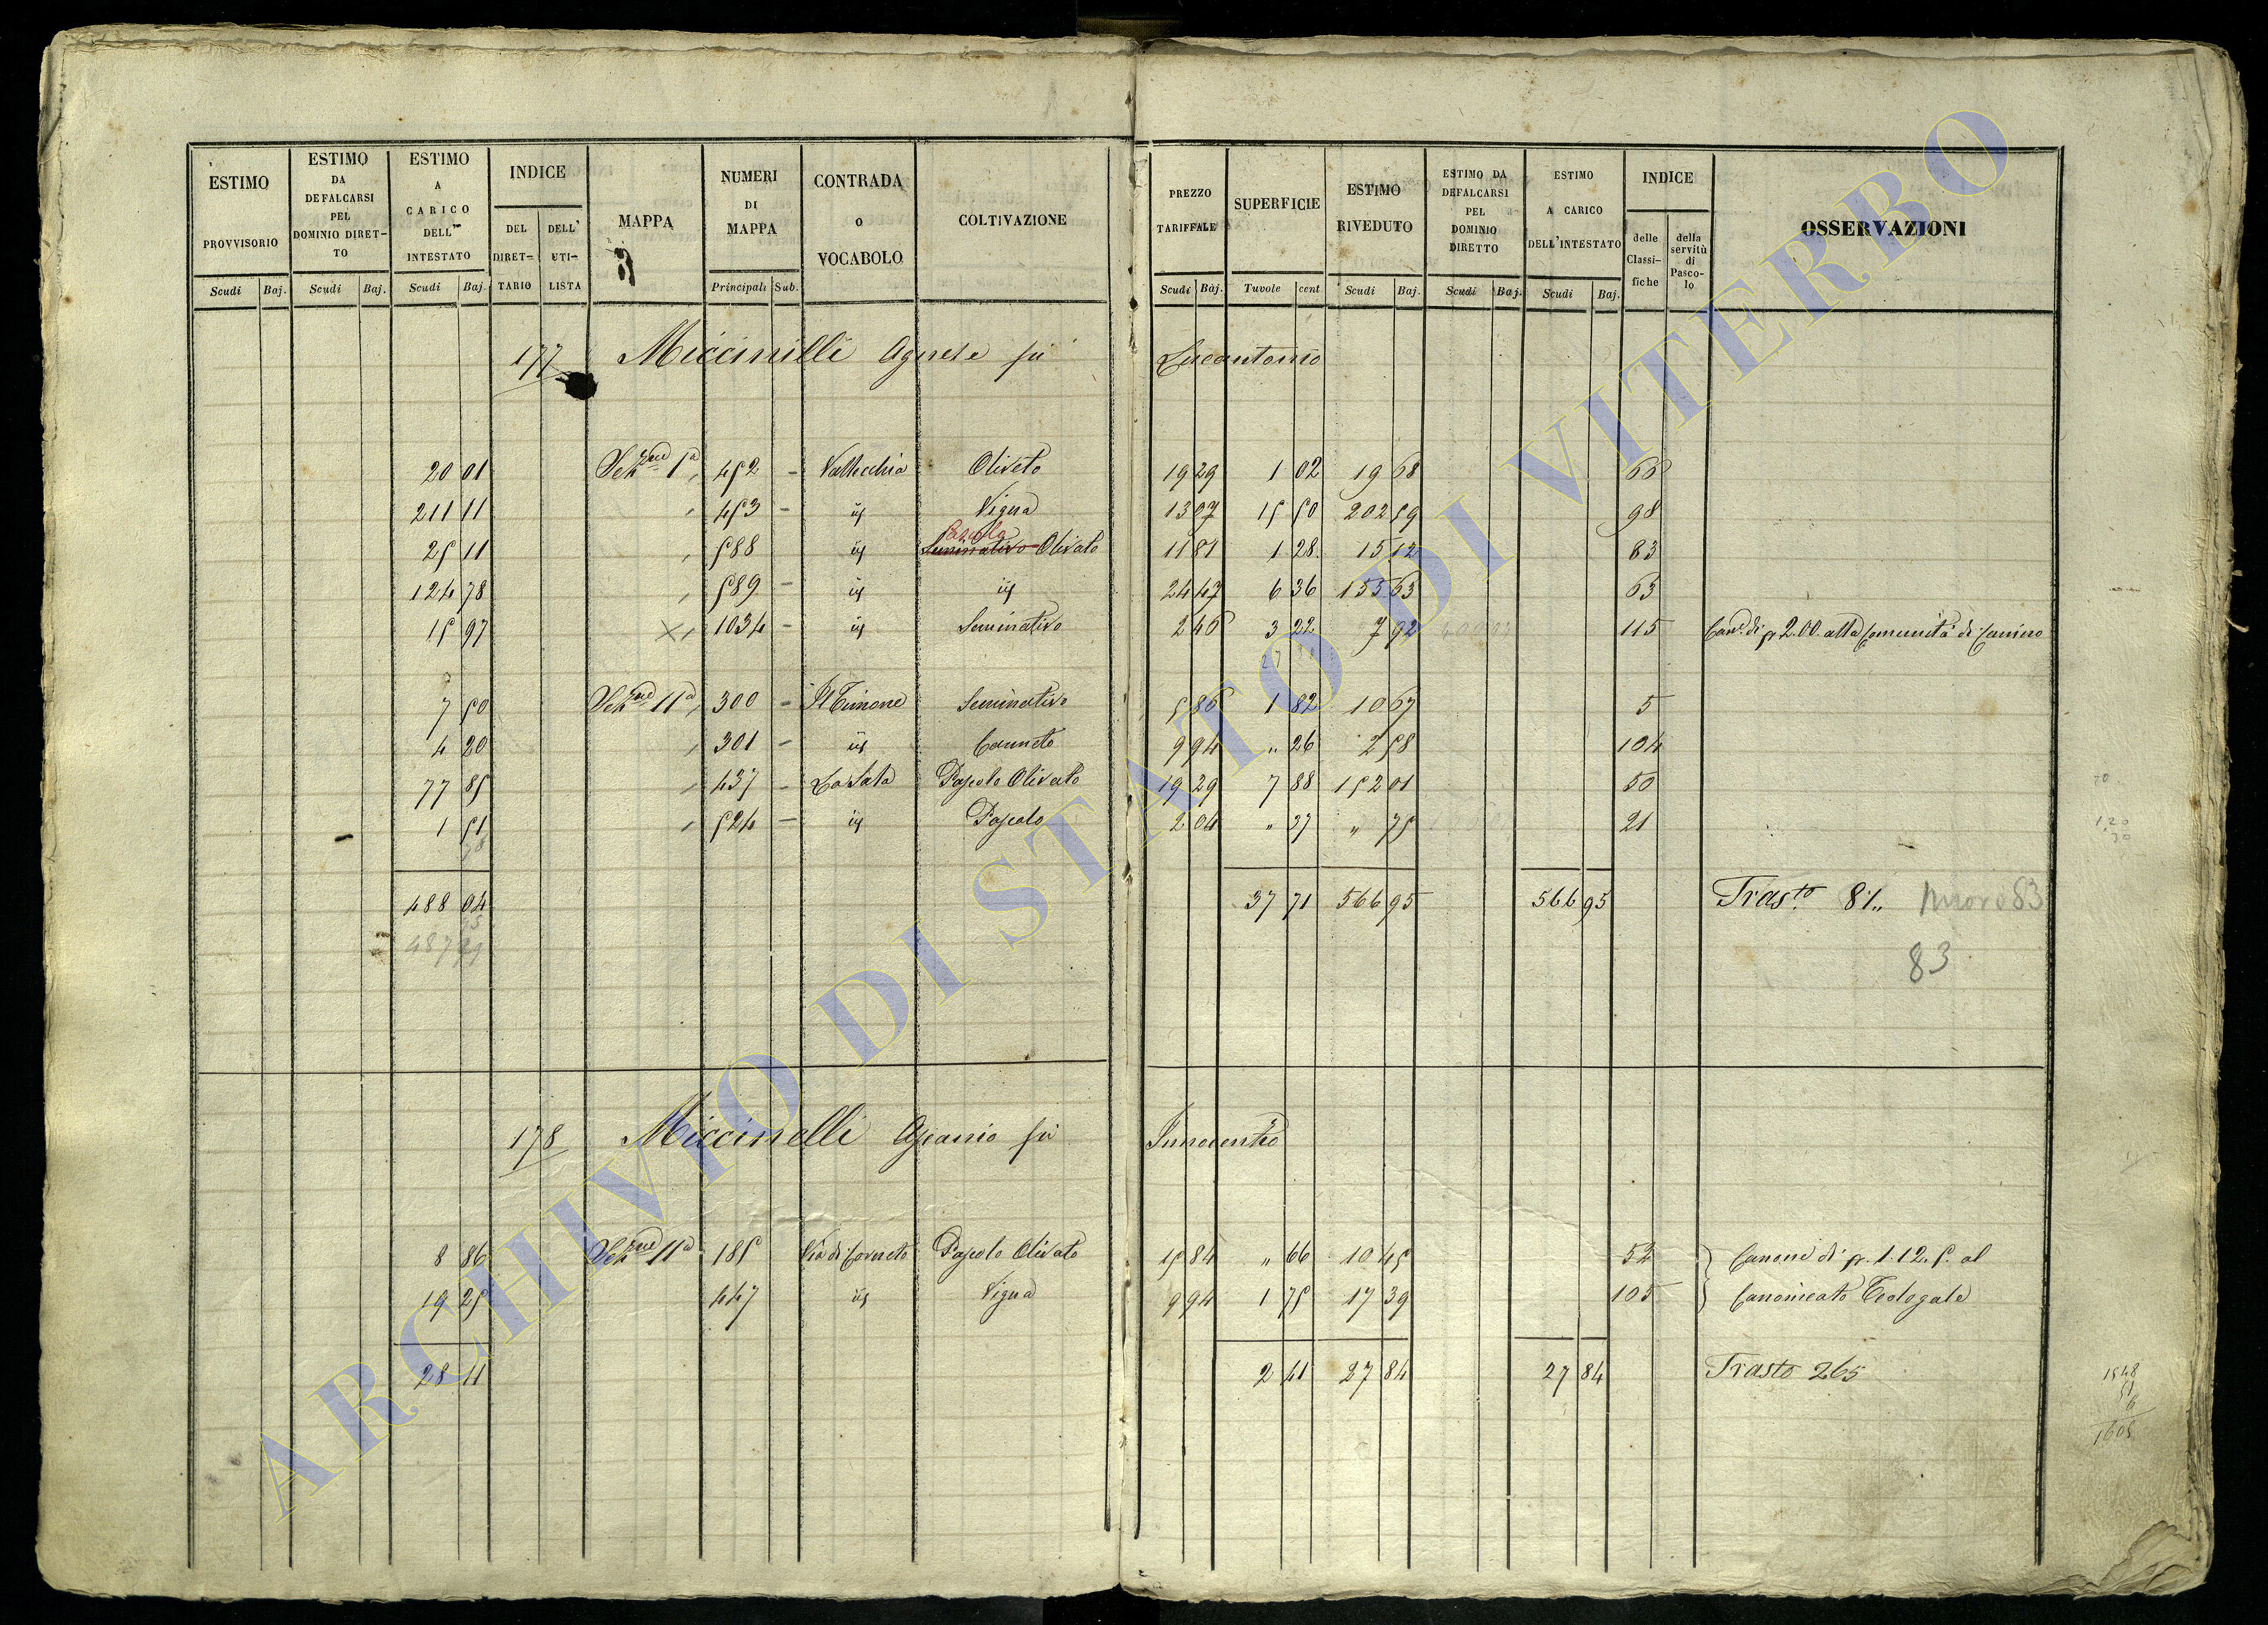 ESTIMO PROVVISORIO
Scudi Baj.
ESTIMO DA DEFALCARSI PEL DOMINIO DIRET-TO
Scudi Baj.
ESTIMO A CARICO DELL' INTESTATO
Scudi Baj.
INDICE
DEL DIRET-TARIO
DELL' UTI-LISTA
MAPPA
NUMERI DI MAPPA
Principali Sub.
CONTRADA o VOCABOLO
COLTIVAZIONE
PREZZO TARIFFALE
Scudi Baj.
SUPERFICIE
Tavole cent
ESTIMO RIVEDUTO
Scudi Baj.
ESTIMO DA DEFALCARSI PEL DOMINIO DIRETTO
Scudi Baj.
ESTIMO A CARICO DELL'INTESTATO
Scudi Baj.
INDICE
delle Classi-fiche
della servitù di Pasco-lo
OSSERVAZIONI
177 Miccinilli Agnese fu Lucantonio
20 01 Sez.ne 1a 452 - Vallecchia Oliveto 19 29 1 02 19 68 66
211 11 453 - id Vigna 13 07 15 50 202 59 98
25 11 588 id Pascolo Seminativo Olivato 11 81 1 28 15 12 83
124 78 589 - id id 24 47 6 36 155 63 63
15 97 X 1034 - id Seminativo 2 46 3 22 7 92 115 Can.e di s 2.00 alla Comunità di Canino
7 50 Sez.ne 11a 300 - Il Timone Seminativo 5 86 1 82 10 67 5
4 20 301 - id Canneto 9 94 " 26 2 58 104
77 85 437 - La Sala Pascolo Olivato 19 29 7 88 152 01 50
1 51 524 - id Pascolo 2 04 " 37 " 75 21
488 04 37 71 566 95 566 95 Trasto 81 nuovo 83
487 29 83
178 Miccinelli Ascanio fu Innocentio
8 86 Sez.ne 11a 185 Via di Corneto Pascolo Olivato 15 84 " 66 10 45 52 Canone di s. 1.12.5. al
19 25 447 id Vigna 9 94 1 75 17 39 105 Canonicato Teologale
28 11 2 41 27 84 27 84 Trasto 265
1548
51
6
1605
ARCHIVIO DI STATO DI VITERBO